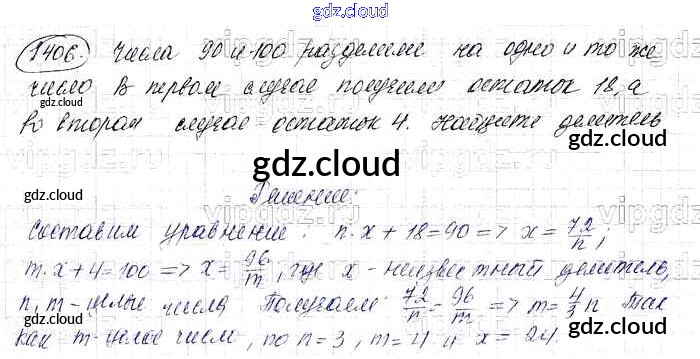 gdz.cloud
1406. Числа 90 и 100 разделили на одно и то же
число В первом случае получили остаток 18, а
во втором случае остаток 4. Найдите делитель
gdz.cloud
gdz.cloud
gdz.cloud
gdz.cloud
gdz.cloud
Решение:
vipgdz
Составим уравнение: n·x + 18 = 90 => x = 72/n;
m·x + 4 = 100 => x = 96/m, где x - неизвестный делитель,
n, m - целые числа Получаем: 72/n = 96/m => m = 4/3 n Так
как m - целое число, то n = 3, m = 4 и x = 24.
gdz.cloud
gdz.cloud